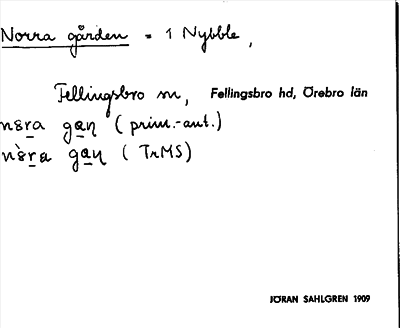 Norra gården = 1 Nybble,
Fellingsbro sn, Fellingsbro hd, Örebro län
(prim.-ant.)
(TrMS)
JÖRAN SAHLGREN 1909